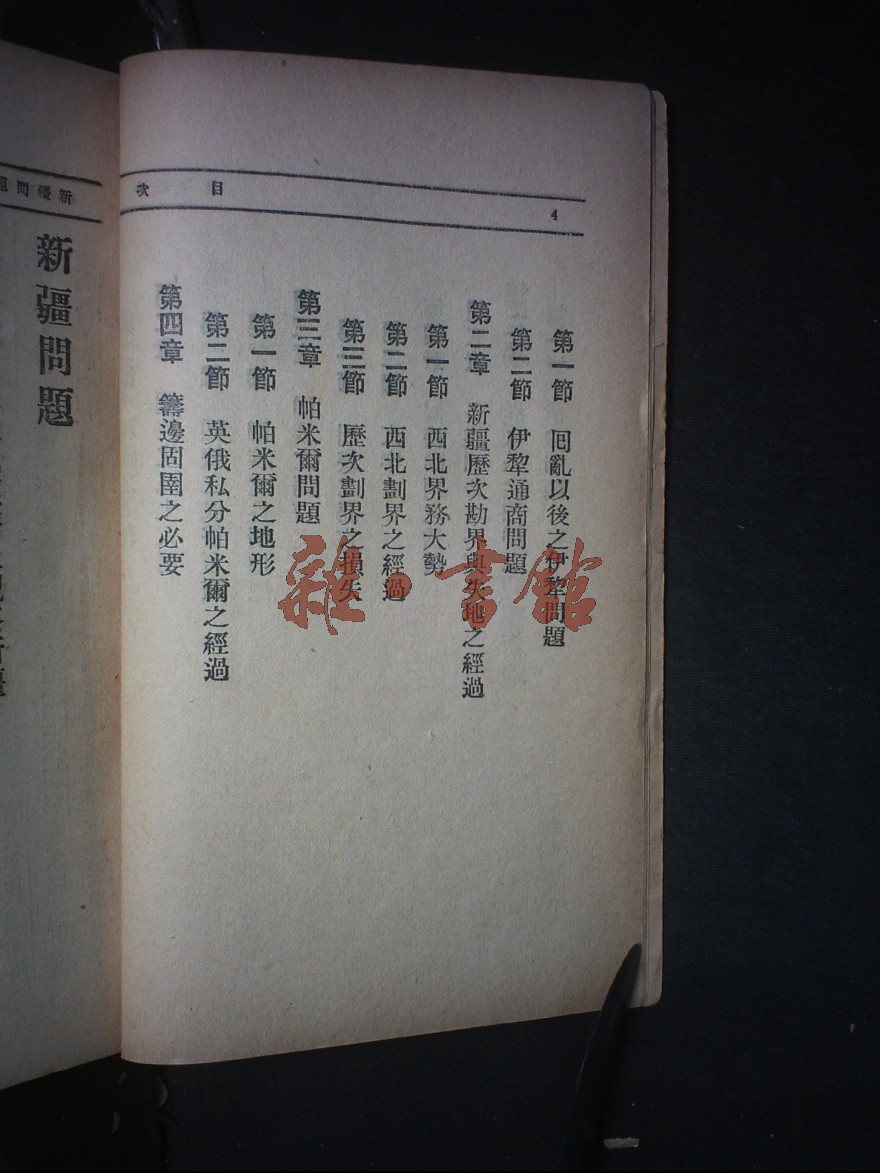 目次
4
第一節 回亂以後之伊犂問題
第二節 伊犂通商問題
第二章 新疆歷次勘界與失地之經過
第一節 西北界務大勢
第二節 西北劃界之經過
第三節 歷次劃界之損失
第三章 帕米爾問題
第一節 帕米爾之地形
第二節 英俄私分帕米爾之經過
第四章 籌邊固圉之必要
新疆問題
新疆問題
雜·書館